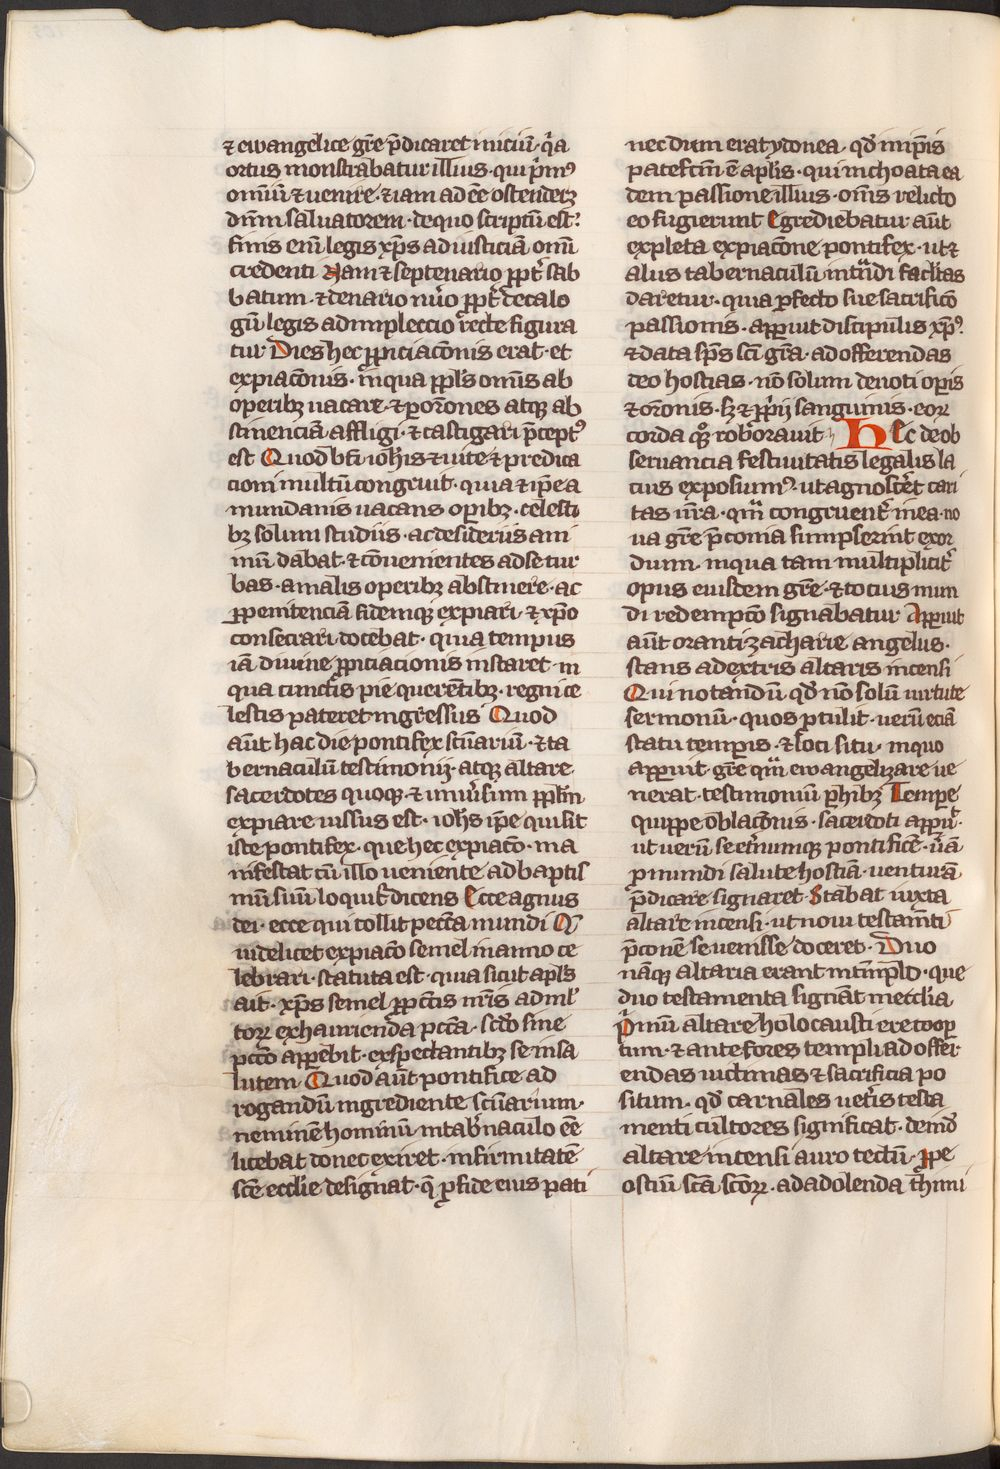 ⁊ ewangelice gr̄e p̄dicaret iniciū. q̇a
ortus monstrabatur illius. qui p̄im⁹
om̄iū ⁊ uenire. ⁊ iam adeē ostenderꝫ
dn̄m saluatorem. de quo scriptū est.
finis enī legis xp̄s ad iusticiā omī
credenti Nam ⁊ septenario ꝓpt̄ sab
batum. ⁊ denario nūo ꝓpt̄ decalo
gū legis adimpleccio recte figura
tur Dies hec ꝓpiciac̄onis erat. et
expiac̄onis. in qua ppl̄s omīs ab
operibꝫ uacare. ⁊ ꝑ or̄ones atqꝫ ab
stinenciā affligi. ⁊ castigari p̄cept⁹
est Quod bt̄i ioh̄is ⁊ uite ⁊ predica
cioni multū congruit. quia ⁊ ip̄e a
mundanis uacans oꝑibꝫ. celesti
bꝫ solum studiis. ac desideriis ani
mū dabat. ⁊ cōuenientes ad se tur
bas. a malis operibꝫ abstinere. ac
ꝑ penitenciā fidemqꝫ expiari. ⁊ xp̄o
consecrari docebat. quia tempus
iā diuine ꝓpiciacionis instaret. in
qua cunctis pie querētibꝫ. regni ce
lestis pateret ingressus Quod
aūt hac die pontifex scūarium. ⁊ ta
bernaculū testimonij. atqꝫ altare.
sacerdotes quoqꝫ. ⁊ uniūsum ppl̄m
expiare iussus est. ioh̄s ip̄e qui sit
iste pontifex. que hec expiac̄o. ma
nifestat cū illo ueniente ad baptis
mū suū loquit̄ dicens Ecce agnus
dei. ecce qui tollit pecc̄ta mundi Q̄
uidelicet expiac̄o semel in anno ce
lebrari. statuta est. quia sicut apl̄s
ait. xp̄s semel ꝓ pcc̄tis nr̄is ad ml̄
toꝝ exhaurienda pcc̄ta. scd̄o sine
pcc̄to apꝑebit. exspectantibꝫ se in sa
lutem Quod aūt pontifice ad
rogandū ingrediente scūarium.
neminē hominū in tab̄naculo eē
licebat donec exiret. infirmitatē
scē eccl̄ie designat. q̄ ꝑ fide eius pati
nec dum erat ydonea. qd̄ in ip̄is
patefctm̄ ē apl̄is. qui inchoata ea
dem passione illius. om̄s relicto
eo fugierunt Egrediebatur aūt
expleta expiac̄one pontifex. ut ⁊
aliis tabernaculū int̄ndi facl̄tas
daretur. quia ꝑfecto sue sacrific̄o
passionis. apꝑuit discipulis xp̄⁹.
⁊ data sp̄s sc̄i gr̄a. ad offerendas
deo hostias. nō solum deuoti oꝑis
⁊ or̄onis. sꝫ ⁊ ꝓprij sanguinis. eoꝝ
corda qꝫ roborauit Hec de ob
seruancia festiuitatis legalis la
cius exposuim⁹. ut agnosceret cari
tas ur̄a. qm̄ congruent̄ in ea. no
ua gr̄e p̄conia sumpserint exor
dium. in qua tam multiplicit̄
opus eiusdem gr̄e. ⁊ tocius mun
di redempc̄o signabatur Apꝑuit
aūt oranti zacharie angelus.
stans a dextris altaris incensi
Qui notandū qd̄ nō solū uirtute
sermonū. quos ꝓtulit. uerū eciā
statu temꝑis. ⁊ loci situ. in quo
apꝑuit. gr̄e qm̄ ewangelizare ue
nerat. testimoniū ꝑhibꝫ Tempe
quippe oblac̄onis. sacerdoti apꝑuit.
ut uerū se et̄numqꝫ pontificē. ūā
ꝓ mundi salute hostiā uenturā
p̄dicare signaret Stabat iuxta
altare incensi. ut noui testam̄ti
p̄conē se uenisse doceret. Duo
nāqꝫ altaria erant in templo. que
duo testamenta signāt in eccl̄ia
Primū altare holocausti ere cooꝑ
tum. ⁊ ante fores templi ad offer
endas uictimas ⁊ sacrificia po
situm. qd̄ carnales uet̄is testa
menti cultores significat. deind̄
altare incensi auro tectū. ꝓpe
ostiū scā scōꝝ. ad adolenda thimi